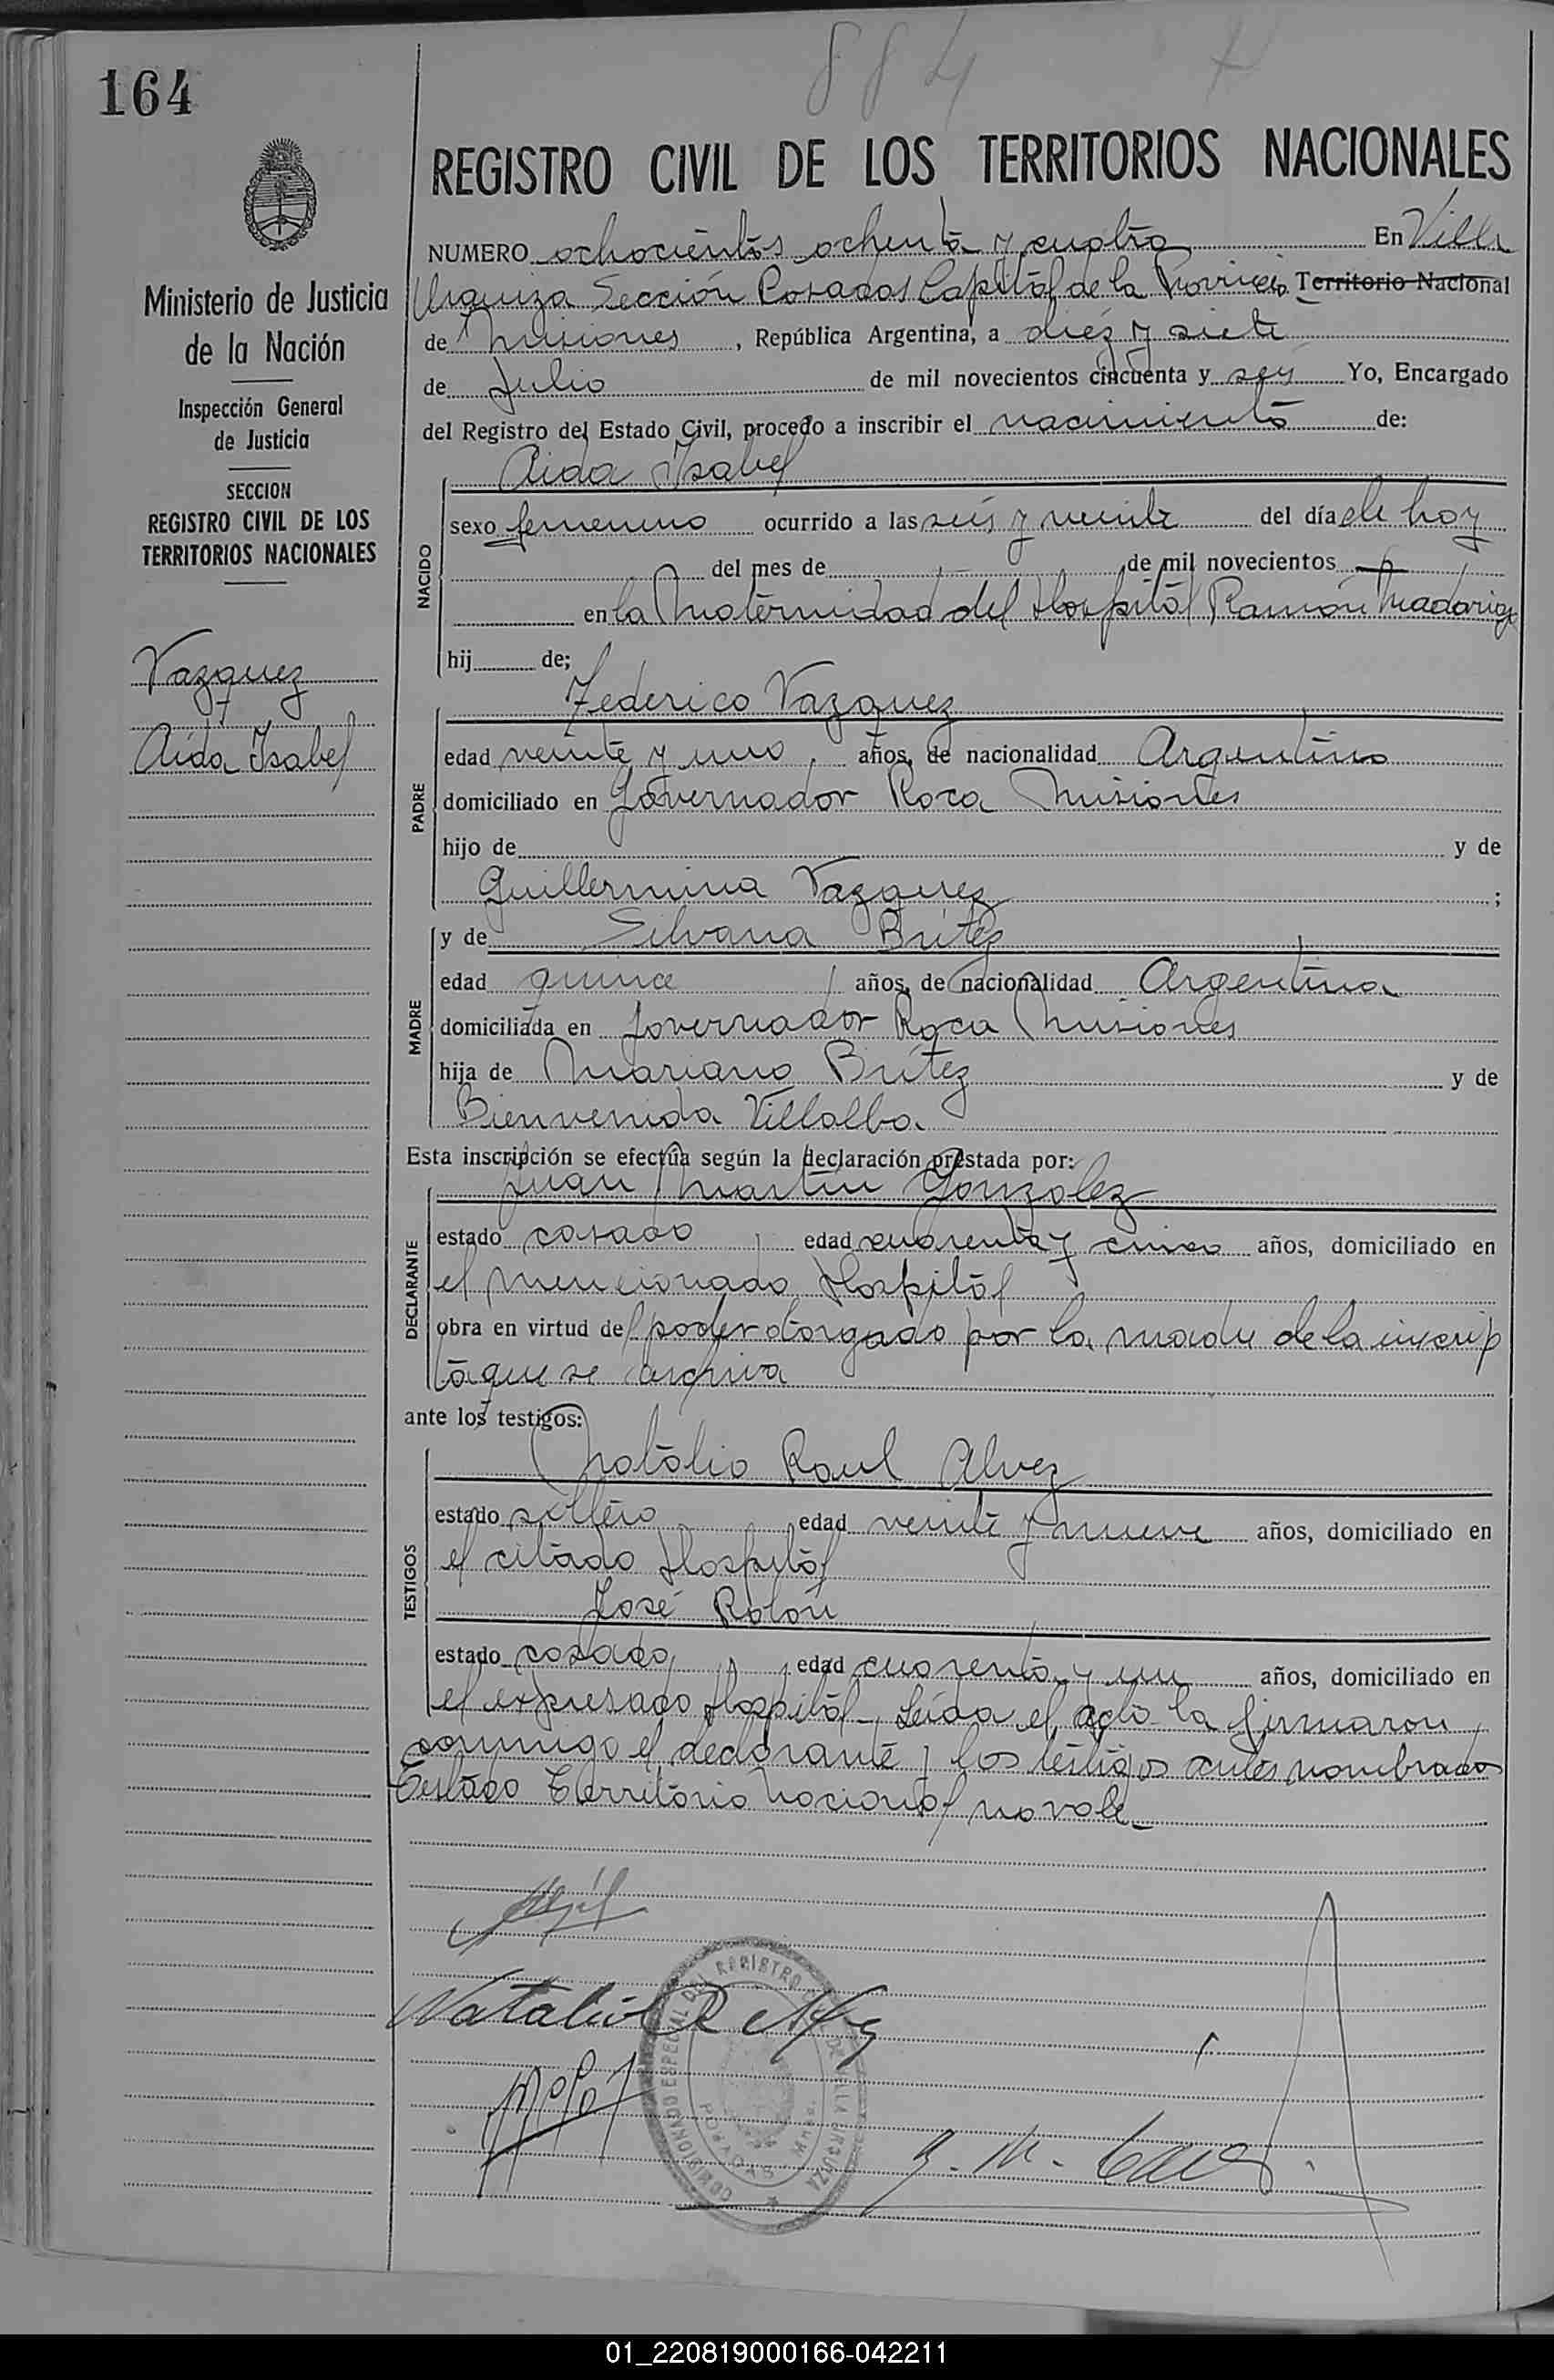 884
164
REGISTRO CIVIL DE LOS TERRITORIOS NACIONALES
Ministerio de Justicia
de la Nación
Inspección General
de Justicia
SECCION
REGISTRO CIVIL DE LOS
TERRITORIOS NACIONALES
Vazquez
Aida Isabel
NUMERO ochocientos ochenta y cuatro En Villa
Urquiza Sección Posadas Capital de la Provincia Territorio Nacional
de Misiones, República Argentina, a diez y siete
de Julio de mil novecientos cincuenta y seis Yo, Encargado
del Registro del Estado Civil, procedo a inscribir el nacimiento de:
Aida Isabel
NACIDO
sexo femenino ocurrido a las seis y veinte del día de hoy
del mes de de mil novecientos
en la Maternidad del Hospital Ramón Madariaga
hij de;
Federico Vazquez
PADRE
edad veinte y uno, años, de nacionalidad Argentino
domiciliado en Governador Roca Misiones
hijo de y de
Guillermina Vazquez ;
MADRE
y de Silvana Britez
edad quince años, de nacionalidad Argentina
domiciliada en Governador Roca Misiones
hija de Mariano Britez y de
Bienvenida Villalba.
Esta inscripción se efectúa según la declaración prestada por:
Juan Martin Gonzalez
DECLARANTE
estado casado, edad cuarenta y cinco años, domiciliado en
el mencionado Hospital
obra en virtud del poder otorgado por la madre de la inscrip
ta que se archiva
ante los testigos:
Natalio Raul Alvez
TESTIGOS
estado soltero edad veinte y nueve años, domiciliado en
el citado Hospital
José Rolón
estado casado, edad cuarenta y un años, domiciliado en
el expresado Hospital- Leida el acto la firmaron
conmigo el declarante y los testigos antes nombrados
Testado Territorio Nacional no vale-
Natalio R Alvez
COMISIONADO ESPECIAL DEL REGISTRO CIVIL DE VILLA URQUIZA
POSADAS
01_220819000166-042211